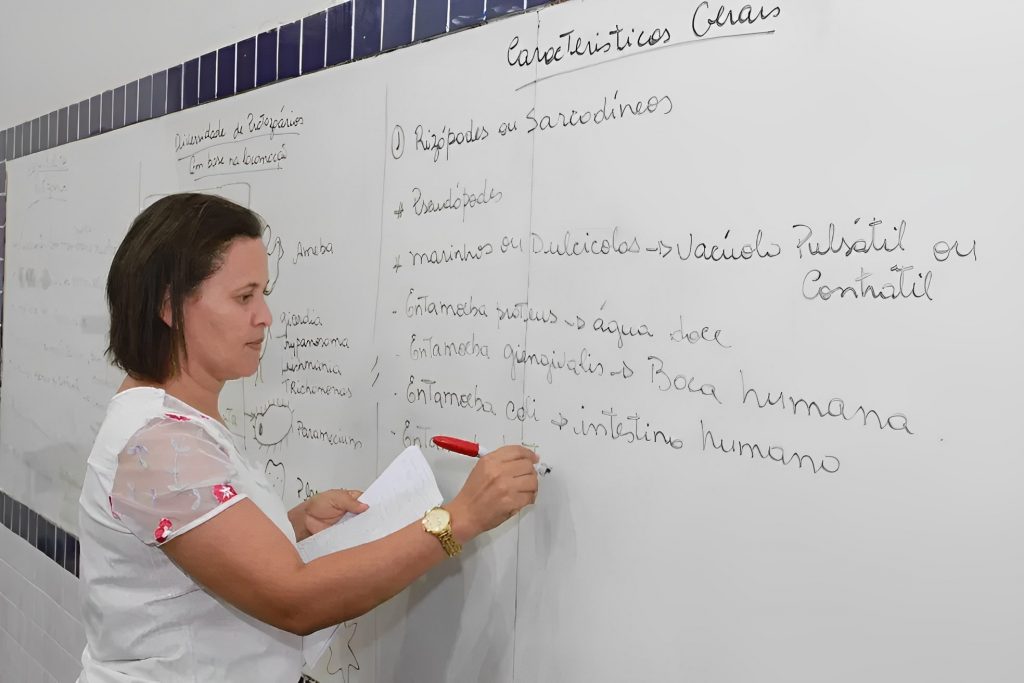 Diversidade de Protozoários
Com base na locomoção
Ameba
giardia
trypanosoma
Trichomonas
Paramecium
Características Gerais
1) Rizópodes ou Sarcodíneos
* Pseudópodes
* marinhos ou Dulcícolas → Vacúolo Pulsátil ou
Contrátil
- Entamoeba proteus → água doce
- Entamoeba gengivalis → Boca humana
- Entamoeba coli → intestino humano